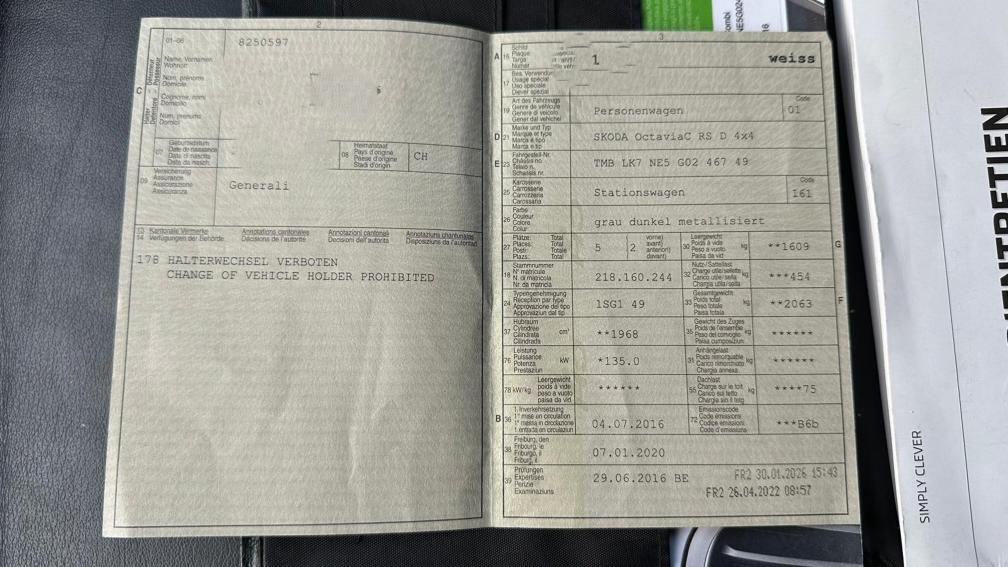 2
01-06
8250597
C
Détenteur
Name, Vornamen
Wohnort
Nom, prénoms
Domicile
Cognome, nomi
Domicilio
Num, prenums
Domicil
07
Geburtsdatum
Date de naissance
Data di nascita
Data da nasch.
08
Heimatstaat
Pays d'origine
Paese d'origine
Stadi d'origin
CH
09
Versicherung
Assurance
Assicurazione
Assicuranza
Generali
13
14
Kantonale Vermerke
Verfügungen der Behörde
Annotations cantonales
Décisions de l'autorité
Annotazioni cantonali
Decisioni dell'autorità
Annotaziuns chantunalas
Disposiziuns da l'autoritad
178 HALTERWECHSEL VERBOTEN
CHANGE OF VEHICLE HOLDER PROHIBITED
3
A
15
Schild
Plaque
Targa
Numer
1
weiss
17
Bes. Verwendung
Usage spécial
Uso speciale
Diever spezial
19
Art des Fahrzeugs
Genre de véhicule
Genere di veicolo
Gener dal vehichel
Personenwagen
Code
01
D
21
Marke und Typ
Marque et type
Marca e tipo
Marca e tip
SKODA OctaviaC RS D 4x4
E
23
Fahrgestell-Nr.
Châssis no
Telaio n.
Schassis nr.
TMB LK7 NE5 G02 467 49
25
Karosserie
Carrosserie
Carrozzeria
Carossaria
Stationswagen
Code
161
26
Farbe
Couleur
Colore
Colur
grau dunkel metallisiert
27
Plätze: Total
Places: Total
Posti: Totale
Plazs: Total
5
2
vorne)
avant)
anteriori)
davant)
30
Leergewicht
Poids à vide
Peso a vuoto
Paisa da vid
kg
**1609
G
18
Stammnummer
N° matricule
N. di matricola
Nr. da matricla
218.160.244
32
Nutz-/Sattellast
Charge utile/sellette
Carico utile/sella
Chargia utila/sella
kg
***454
24
Typengenehmigung
Réception par type
Approvazione del tipo
Approvaziun dal tip
1SG1 49
33
Gesamtgewicht
Poids total
Peso totale
Paisa totala
kg
**2063
F
37
Hubraum
Cylindrée
Cilindrata
Cilindrada
cm³
**1968
35
Gewicht des Zuges
Poids de l'ensemble
Peso del convoglio
Paisa cumposiziun
kg
******
76
Leistung
Puissance
Potenza
Prestaziun
kW
*135.0
31
Anhängelast
Poids remorquable
Carico rimorchiato
Chargia annexa
kg
******
78
kW/kg
Leergewicht
poids à vide
peso a vuoto
paisa da vid
******
55
Dachlast
Charge sur le toit
Carico sul tetto
Chargia sin il tetg
kg
****75
B
36
1. Inverkehrsetzung
1re mise en circulation
1a messa in circolazione
1. entrada en circulaziun
04.07.2016
72
Emissionscode
Code émissions
Codice emissioni
Code d'emissiuns
***B6b
38
Freiburg, den
Fribourg, le
Friburgo, il
Friburg, il
07.01.2020
39
Prüfungen
Expertises
Perizie
Examinaziuns
29.06.2016 BE
FR2 30.01.2026 15:43
FR2 26.04.2022 08:57
SIMPLY CLEVER